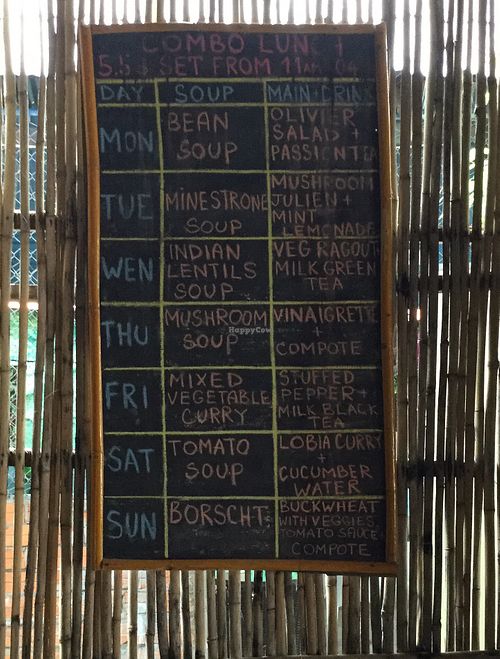 COMBO LUNCH
SET FROM
DAY SOUP MAIN+DRINK
MON BEAN SOUP OLIVIER SALAD + PASSION TEA
TUE MINESTRONE SOUP MUSHROOM JULIEN + MINT LEMONADE
WEN INDIAN LENTILS SOUP VEG RAGOUT MILK GREEN TEA
THU MUSHROOM SOUP VINAIGRETTE + COMPOTE
FRI MIXED VEGETABLE CURRY STUFFED PEPPER + MILK BLACK TEA
SAT TOMATO SOUP LOBIA CURRY + CUCUMBER WATER
SUN BORSCHT BUCKWHEAT WITH VEGGIES, TOMATO SAUCE + COMPOTE
HappyCow